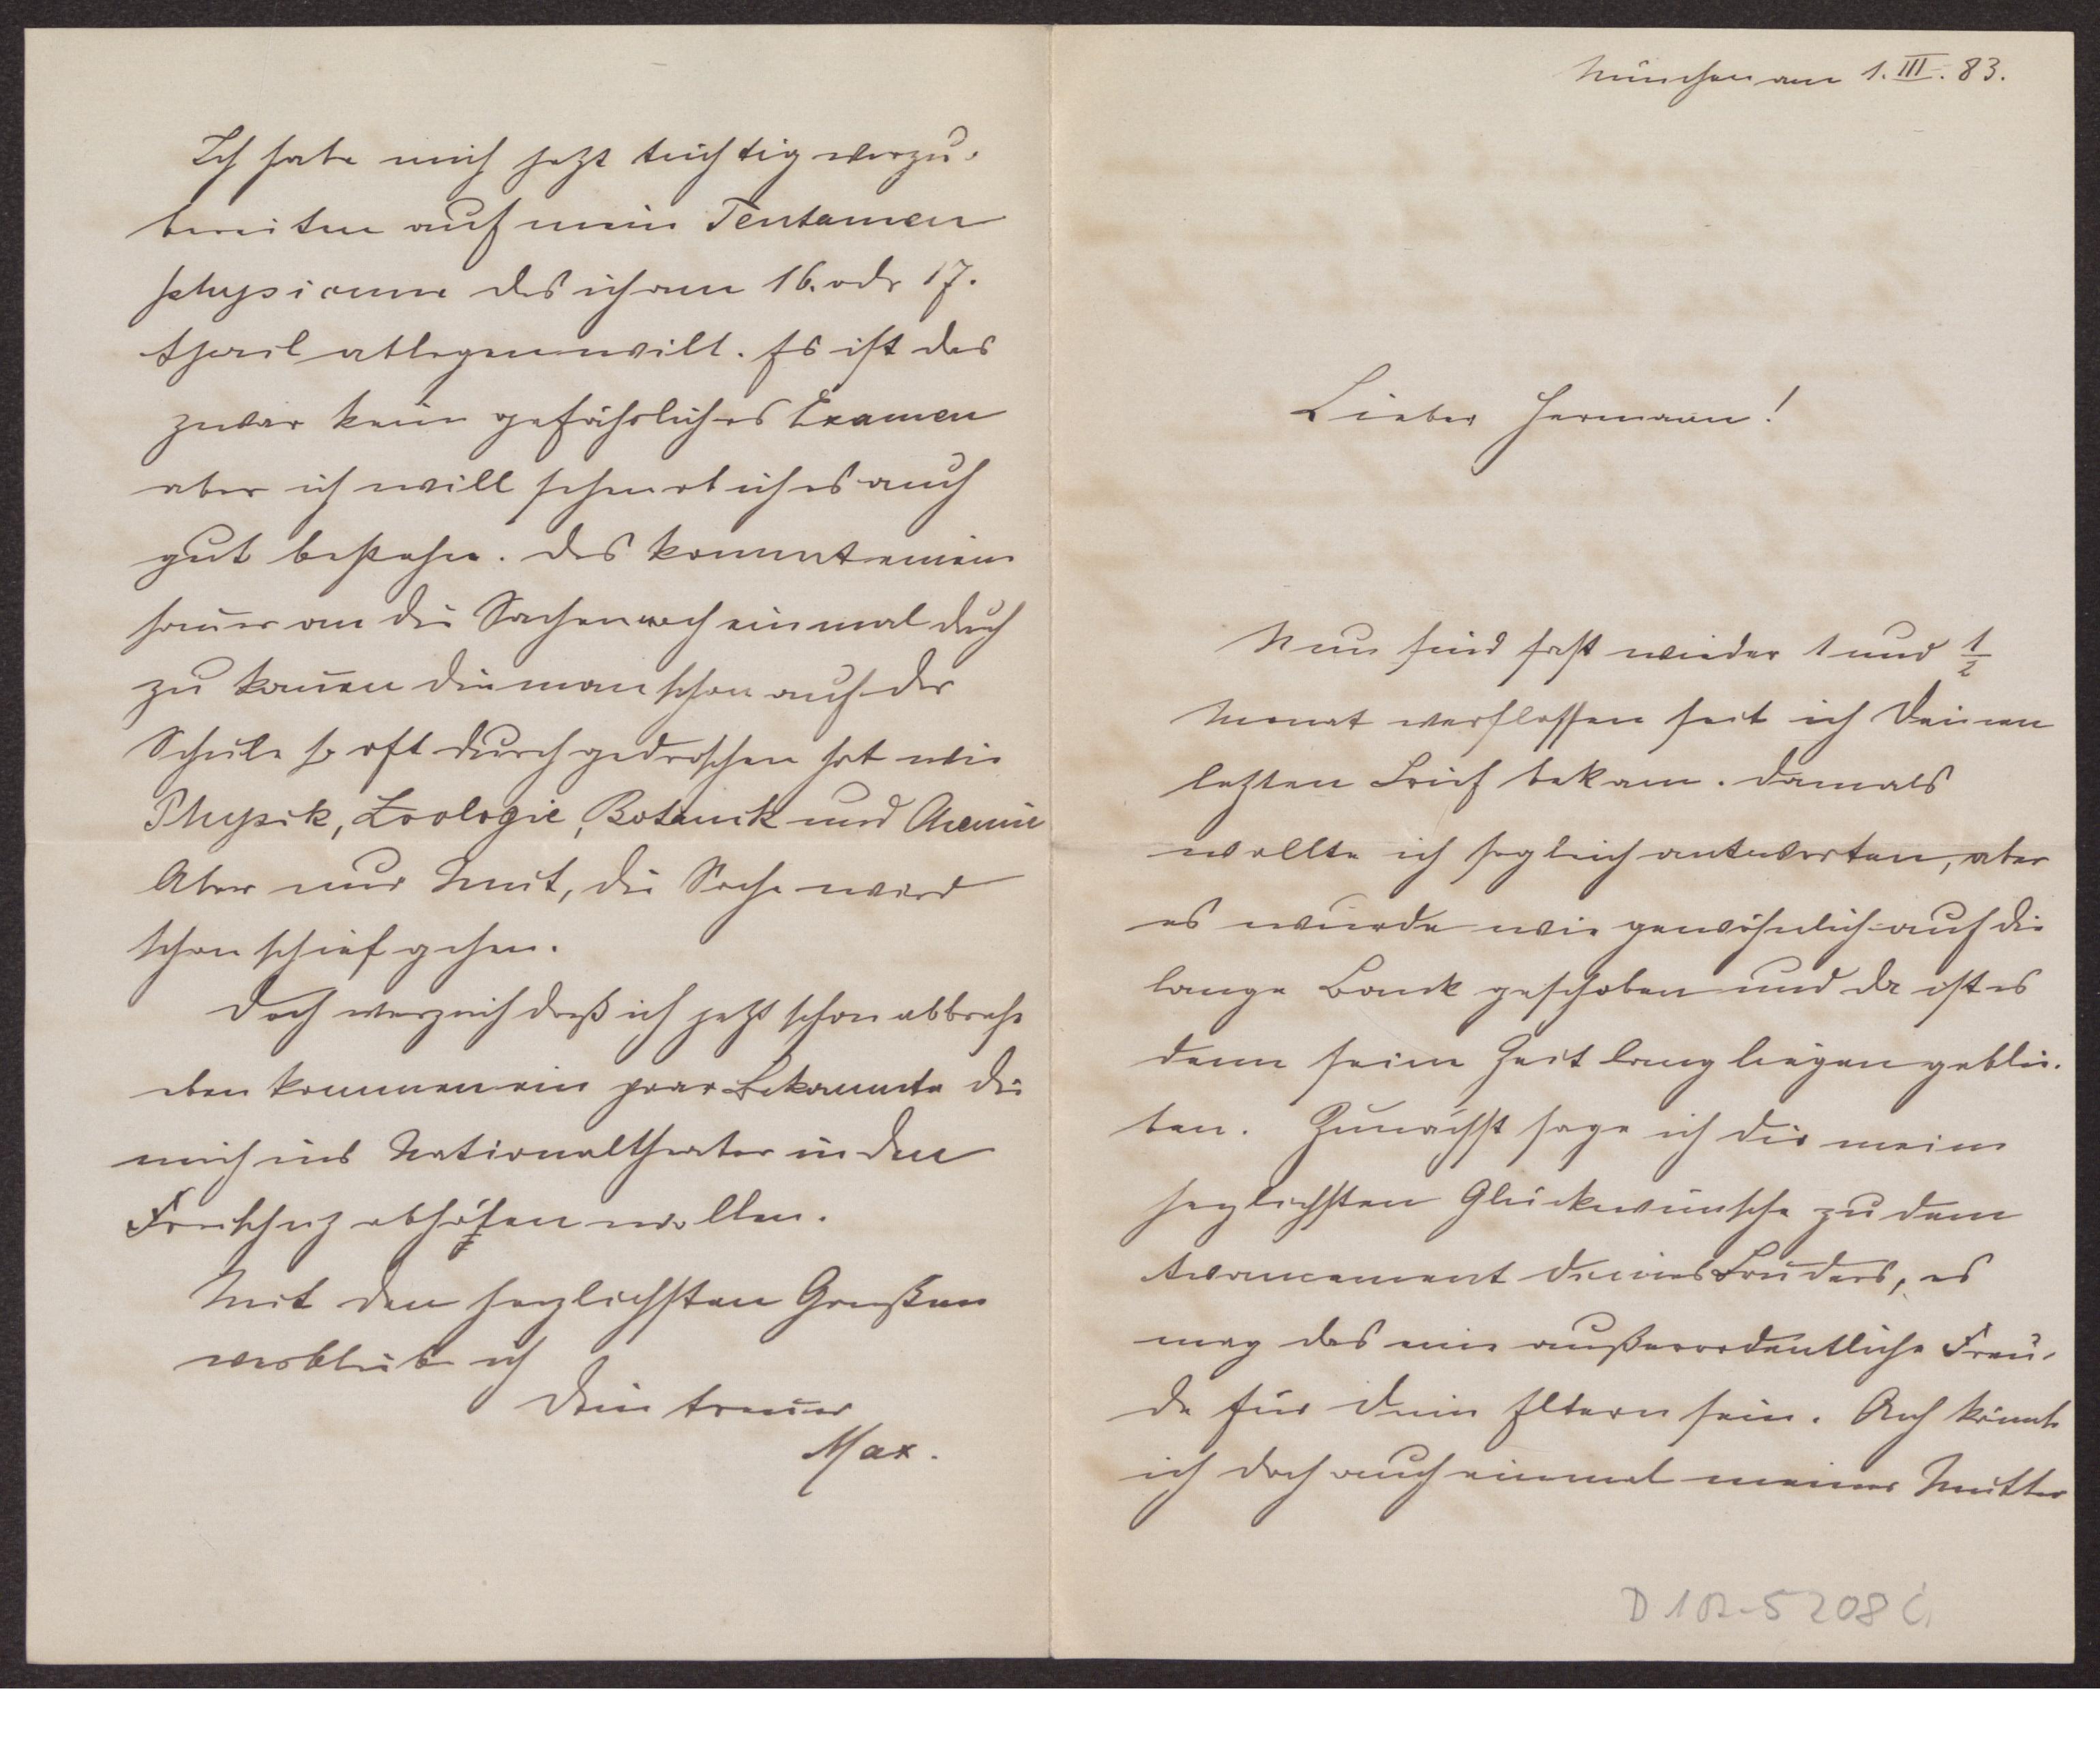 München am 1. III. 83.
Lieber Hermann!
Nun sind fast wieder 1 und 1/2
Monat verflossen seit ich Deinen
lezten Brief bekam. Damals
wollte ich sogleich antworten, aber
es wurde wie gewöhnlich auf die
lange Bank geschoben und da ist es
denn seine Zeit lang liegen geblie-
ben. Zunächst sage ich dir meine
herzlichsten Glückwünsche zu dem
Avancement deines Bruders, es
mag das eine außerordentliche Freu-
de für deine Eltern sein. Ach könnte
ich doch auch einmal meiner Mutter
D 102-5208
Ich habe mich jezt tüchtig vorzu-
bereiten auf mein Tentamen
physicum das ich am 16. oder 17.
April ablegen will. Es ist das
zwar kein gefährliches Examen
aber ich will sehen ob ich es auch
gut bestehe. Das kommt einem
sauer an die Sachen noch einmal durch
zu kauen die man schon auf der
Schule so oft durchgedroschen hat wie
Physik, Zoologie, Botanik und Chemie
Aber nur Mut, die Sache wird
schon schief gehen.
Doch verzeih daß ich jezt schon abbreche
eben kommen ein paar Bekannte die
mich ins Nationaltheater in den
Freischüz abholen wollen.
Mit den herzlichsten Grüßen
verbleibe ich
Dein treuer
Max.